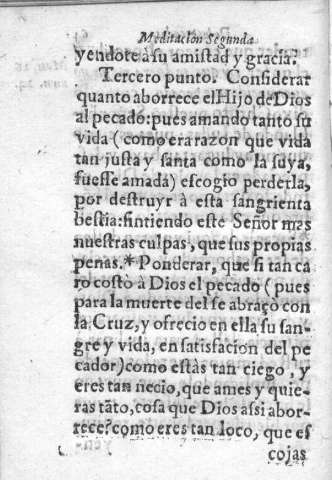 Meditacion Segunda
yendote à su amistad y gracia?
Tercero punto. Considerar
quanto aborrece el Hijo de Dios
al pecado: pues amando tanto su
vida (como era razon que vida
tan justa y santa como la suya,
fuesse amada) escogio perderla,
por destruyr à esta sangrienta
bestia: sintiendo este Señor mas
nuestras culpas, que sus propias
penas.* Ponderar, que si tan ca
ro costò à Dios el pecado (pues
para la muerte del se abraçò con
la Cruz, y ofrecio en ella su san-
gre y vida, en satisfacion del pe
cador) como estàs tan ciego, y
eres tan necio, que ames y quie-
ras tãto, cosa que Dios assi abor-
rece? como eres tan loco, que es
cojas